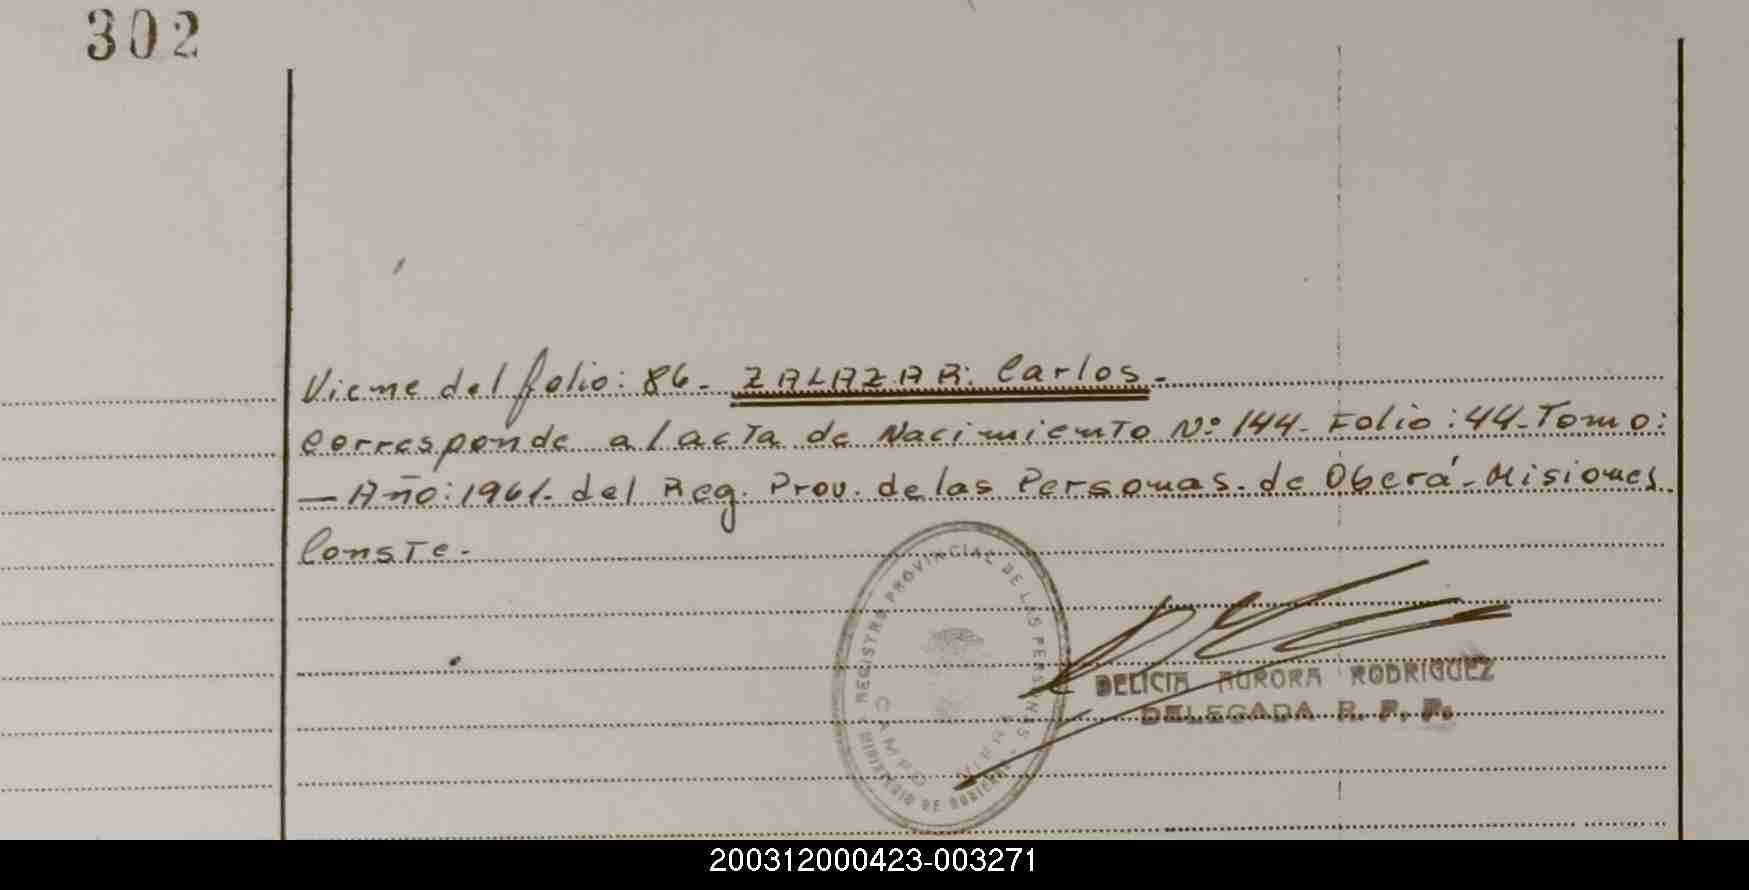 302
Viene del folio: 86. ZALAZAR: Carlos.
Corresponde al acta de Nacimiento Nº 144. Folio: 44. Tomo:
— Año: 1961. del Reg. Prov. de las Personas. de Oberá - Misiones
Conste.
REGISTRO PROVINCIAL DE LAS PERSONAS
CAMPO VIERA
MINISTERIO DE GOBIERNO
DELICIA AURORA RODRIGUEZ
DELEGADA R. P. P.
200312000423-003271